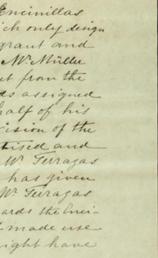 Encinillas
ich only design
grant and
Mr Müller
et from the
ds assigned
half of his
cision of the
tised and
Mr Terragas
has given
Mr Terragas
ards the Enci-
made use
ight have